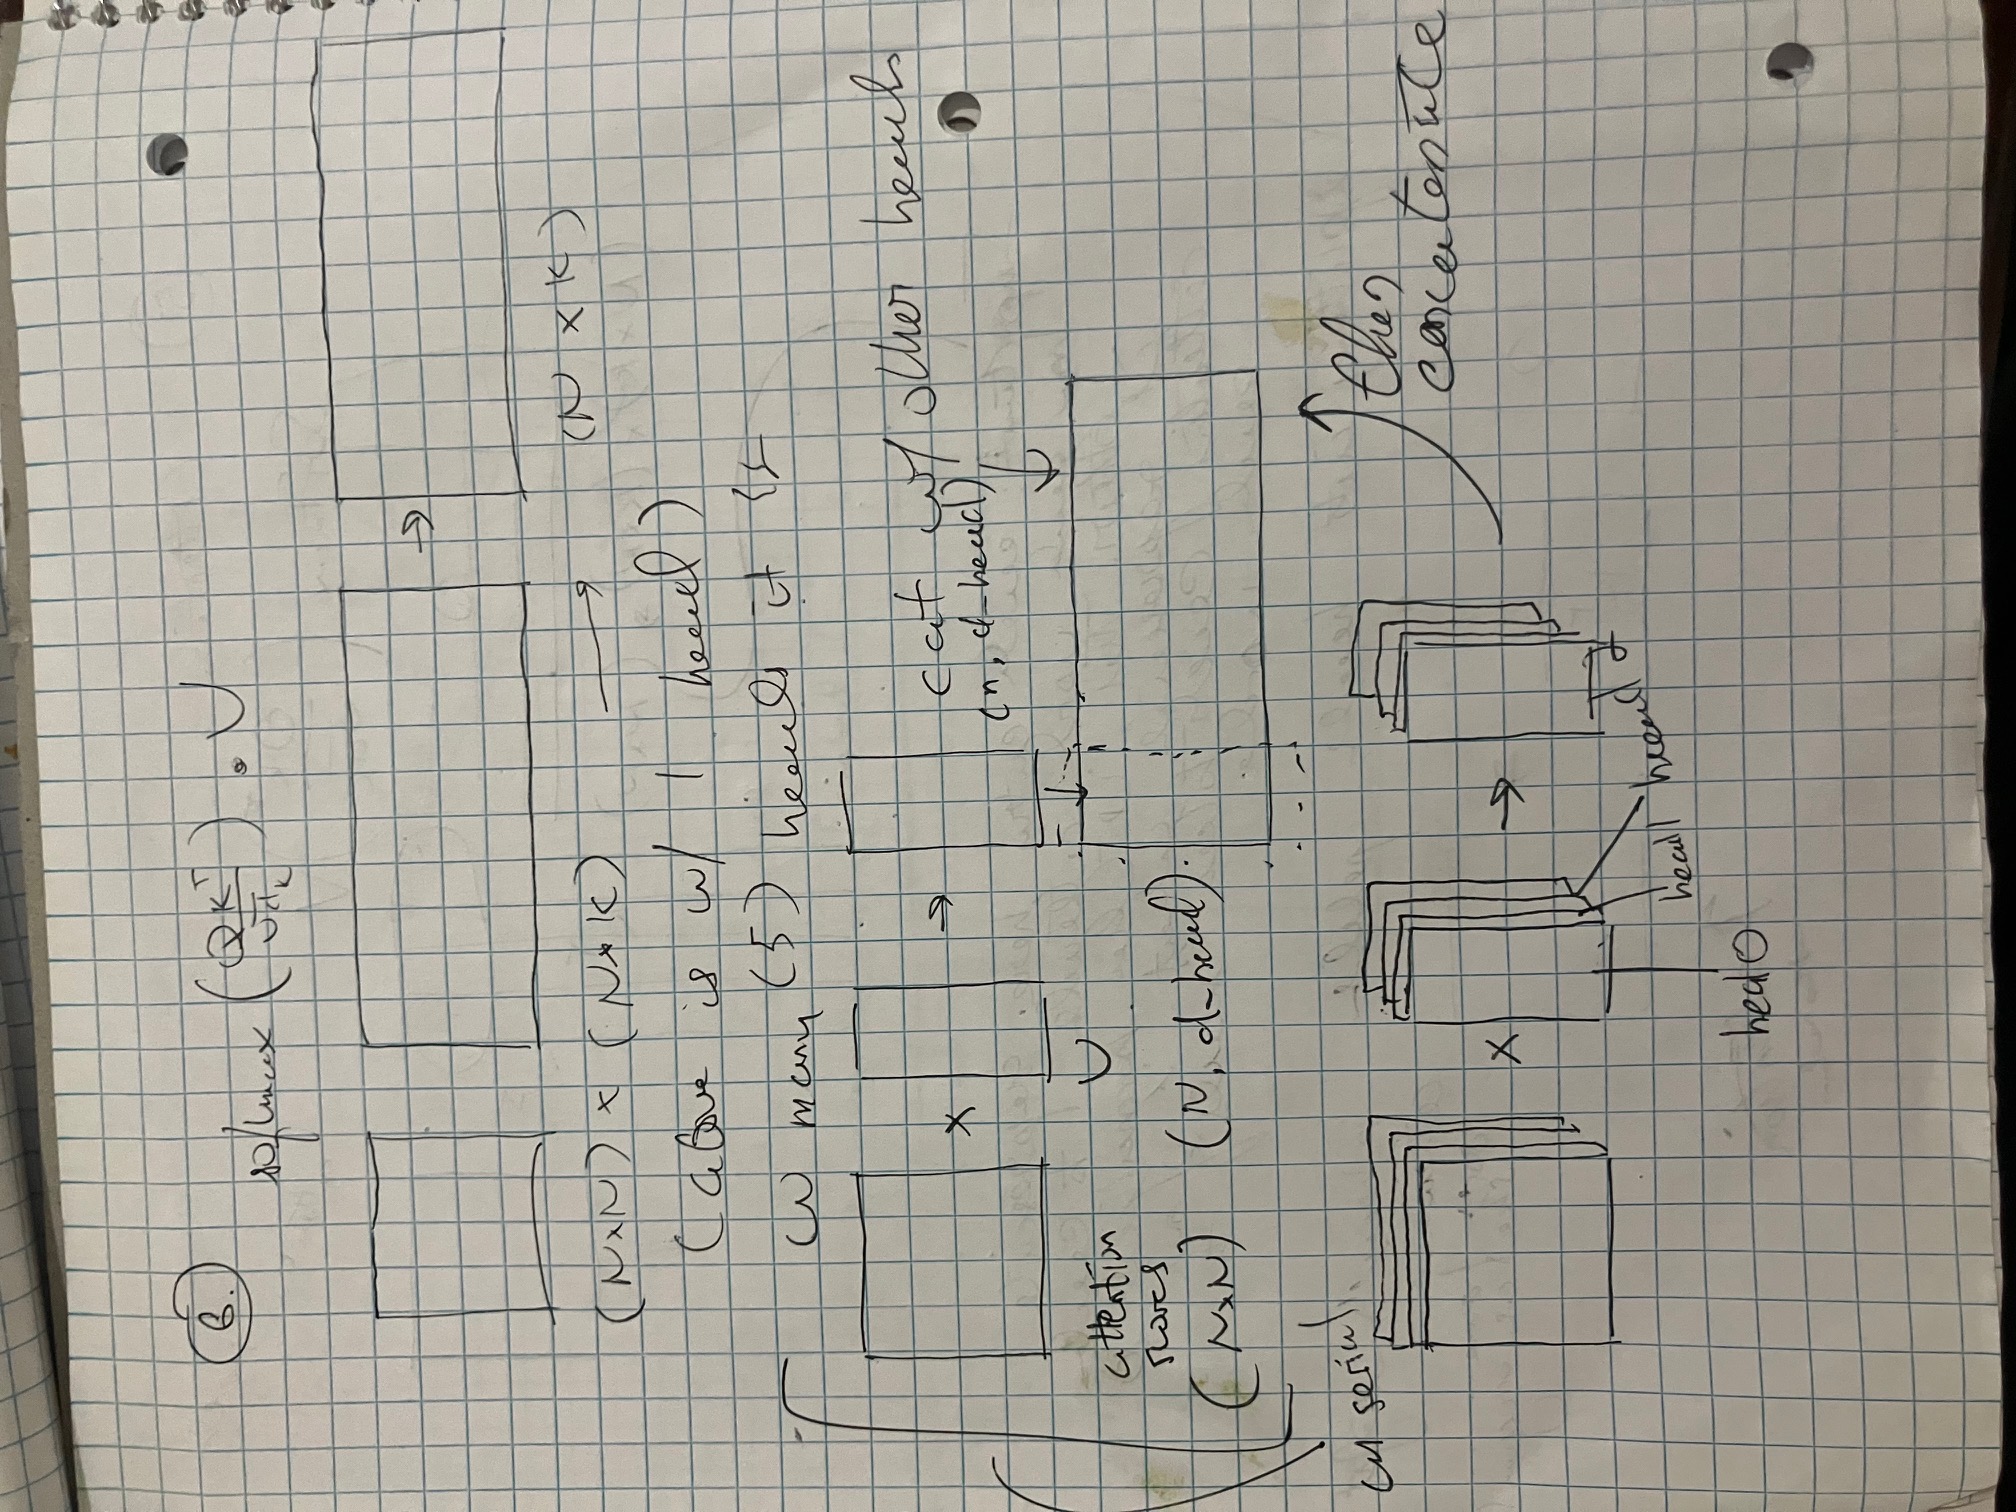 6.
softmax (QK^T / √d_k) · V
(N×N) × (N×K) → (N × K)
(above is w/ 1 head)
w many (5) heads it is
× → cat w/ other heads
(n, d-head)
V
attention
(N×N) (N, d-head)
serial
× → then
concatenate
head1 head 2
hed 0